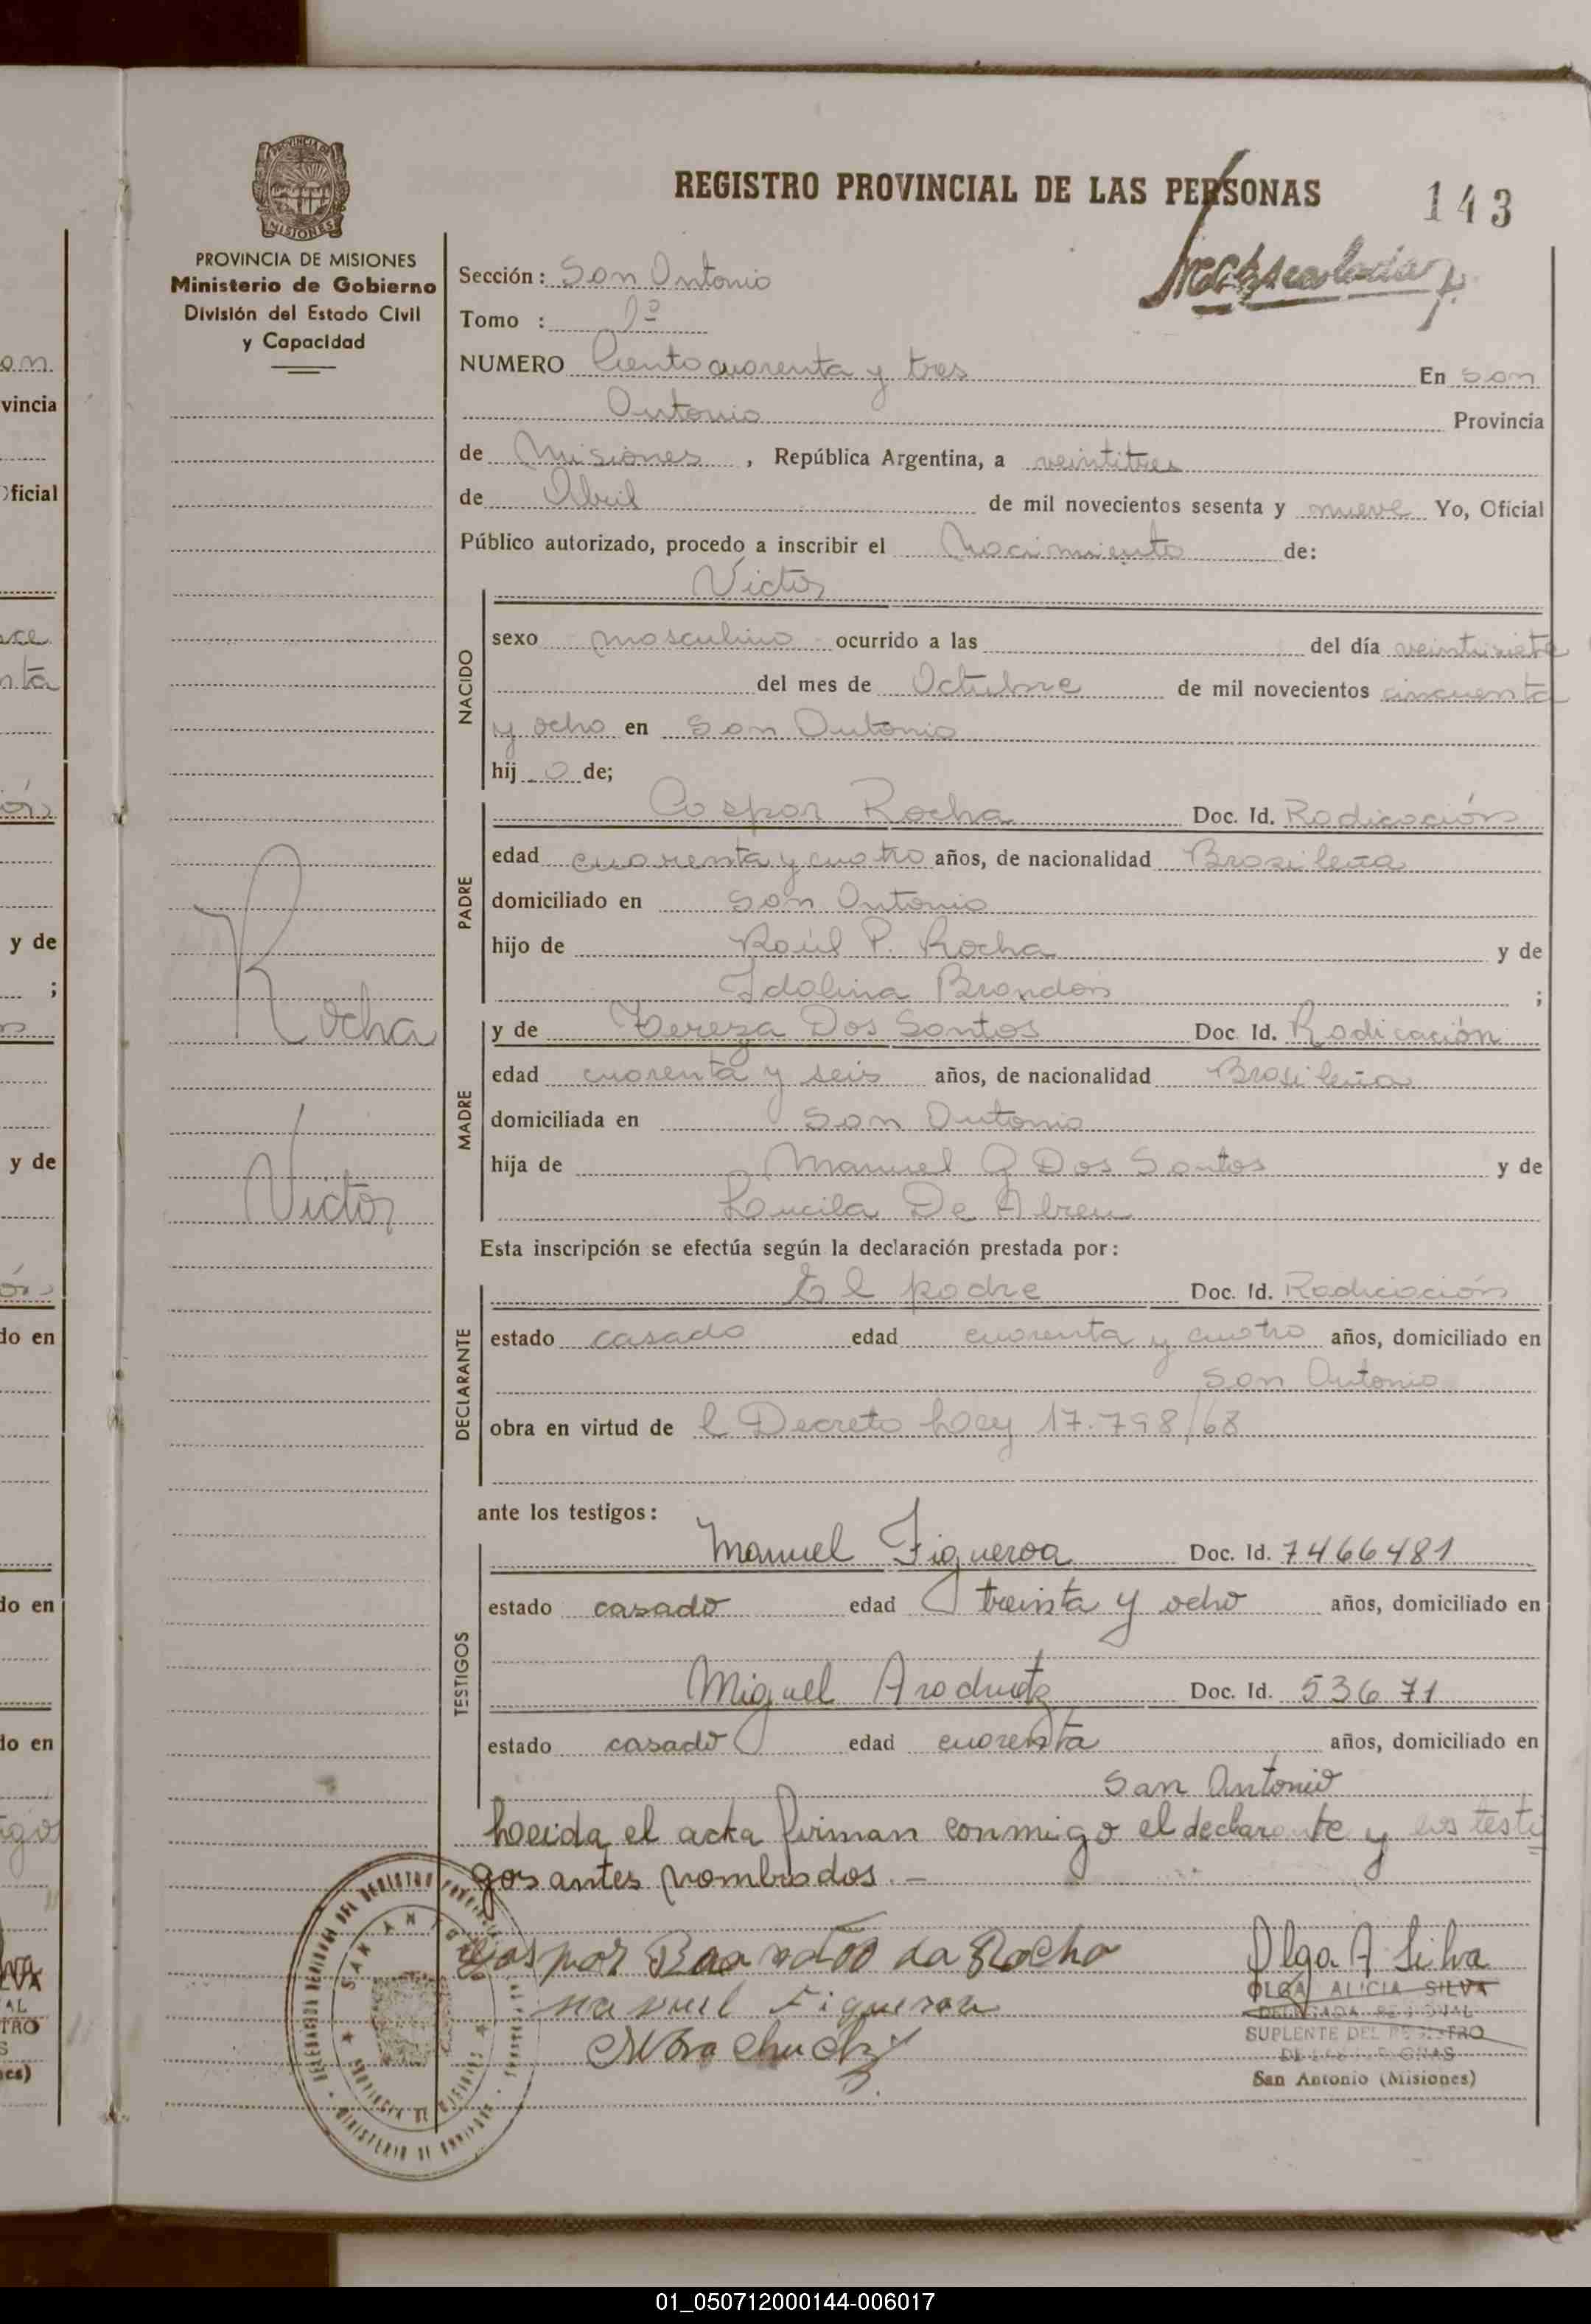 on.
vincia
Oficial
nta
y de
;
y de
do en
do en
do en
PROVINCIA DE MISIONES
Ministerio de Gobierno
División del Estado Civil
y Capacidad
Rocha
Victor
REGISTRO PROVINCIAL DE LAS PERSONAS
143
Sección: San Antonio
Tomo : 1º
NUMERO Ciento cuarenta y tres En San
Antonio Provincia
de Misiones, República Argentina, a veintitres
de Abril de mil novecientos sesenta y nueve Yo, Oficial
Público autorizado, procedo a inscribir el Nacimiento de:
Victor
NACIDO
sexo masculino ocurrido a las del día veintisiete
del mes de Octubre de mil novecientos cincuenta
y ocho en San Antonio
hij o de;
PADRE
Gaspar Rocha Doc. Id. Radicación
edad cuarenta y cuatro años, de nacionalidad Brasileña
domiciliado en San Antonio
hijo de Raúl P. Rocha y de
Idalina Brandon ;
MADRE
y de Tereza Dos Santos Doc. Id. Radicación
edad cuarenta y seis años, de nacionalidad Brasileña
domiciliada en San Antonio
hija de Manuel G Dos Santos y de
Lucila De Abreu
Esta inscripción se efectúa según la declaración prestada por:
DECLARANTE
El padre Doc. Id. Radicación
estado casado edad cuarenta y cuatro años, domiciliado en
San Antonio
obra en virtud de l Decreto Ley 17.798/68
ante los testigos:
TESTIGOS
Manuel Figueroa Doc. Id. 7466481
estado casado edad treinta y ocho años, domiciliado en
Miguel Doc. Id. 53671
estado casado edad cuarenta años, domiciliado en
San Antonio
Leida el acta firman conmigo el declarante y los testi
gos antes nombrados.—
Gaspar da Rocha
Manuel Figueroa
Olga A Silva
OLGA ALICIA SILVA
DELEGADA REGIONAL
SUPLENTE DEL REGISTRO
DE LAS PERSONAS
San Antonio (Misiones)
01_050712000144-006017